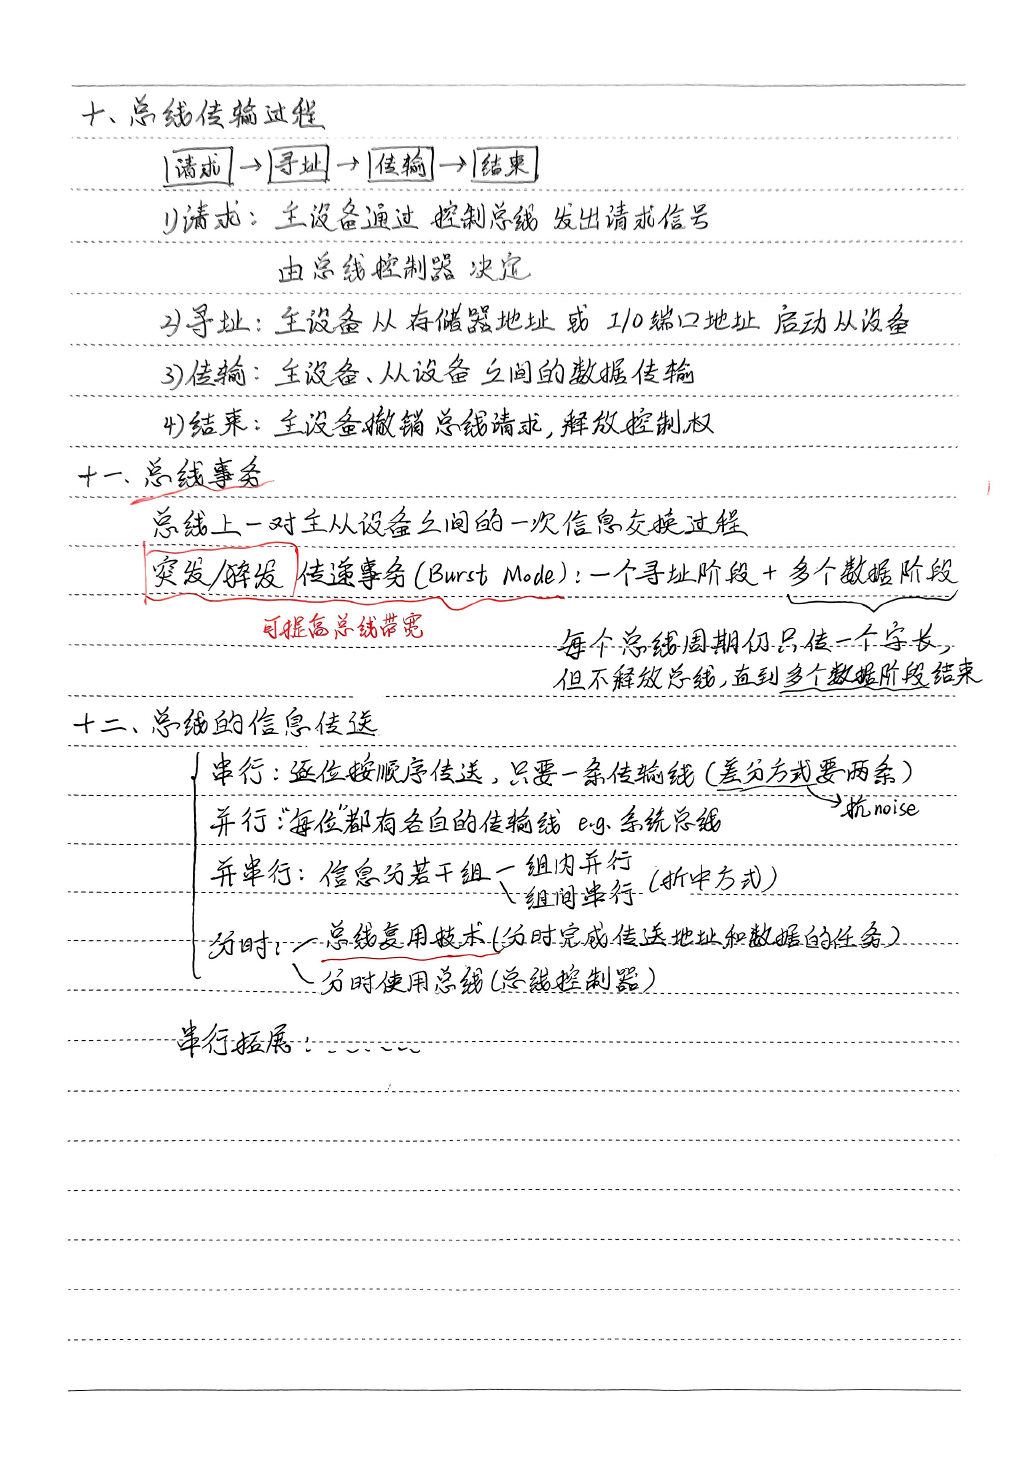 十、总线传输过程
请求 → 寻址 → 传输 → 结束
1)请求：主设备通过 控制总线 发出请求信号
由总线控制器 决定
2)寻址：主设备从 存储器地址 或 I/O端口地址 启动从设备
3)传输：主设备、从设备之间的数据传输
4)结束：主设备撤销总线请求,释放控制权
十一、总线事务
总线上一对主从设备之间的一次信息交换过程
突发/猝发 传递事务(Burst Mode)：一个寻址阶段 + 多个数据阶段
可提高总线带宽
每个总线周期仍只传一个字长,
但不释放总线,直到多个数据阶段结束
十二、总线的信息传送
串行：逐位按顺序传送，只要一条传输线(差分方式要两条)
→抗noise
并行："每位"都有各自的传输线 e.g. 系统总线
并串行：信息分若干组
组内并行
组间串行
(折中方式)
分时：
总线复用技术(分时完成传送地址和数据的任务)
分时使用总线(总线控制器)
串行拓展：